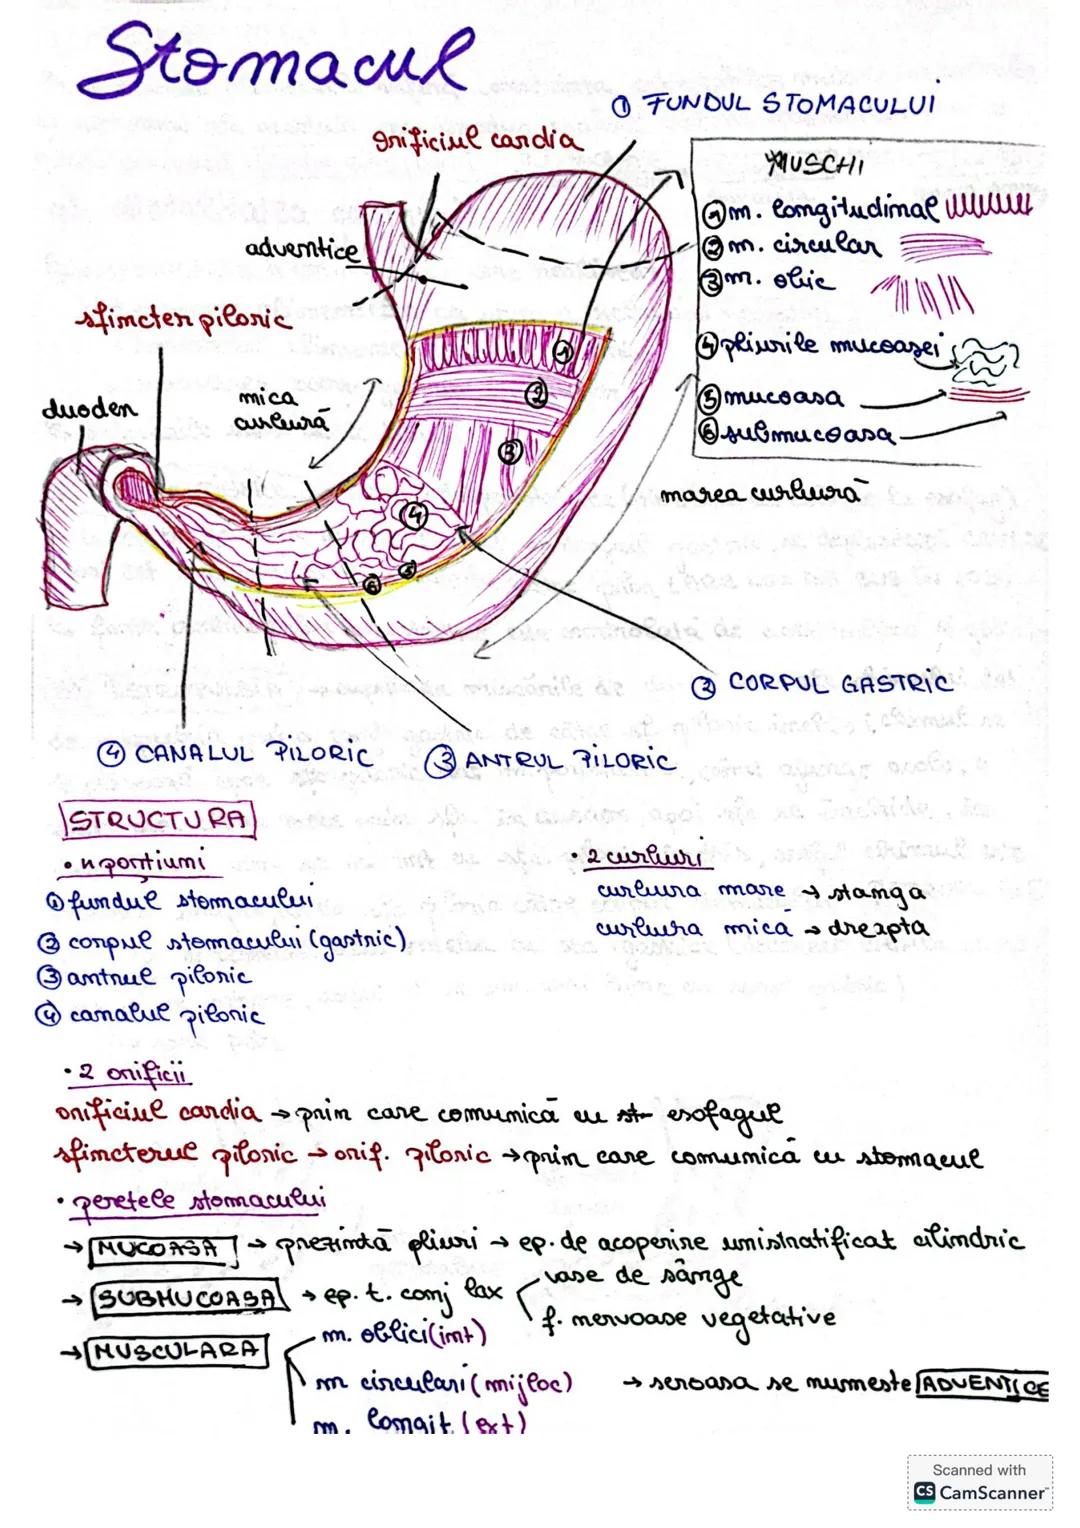 Stomacul
① FUNDUL STOMACULUI
orificiul cardia
adventice
sfincter piloric
duoden
mica
curbură
MUSCHI
① m. longitudinal
② m. circular
③ m. oblic
④ pliurile mucoasei
⑤ mucoasa
⑥ submucoasa
①
②
③
④
⑤
⑥
marea curbură
② CORPUL GASTRIC
④ CANALUL PILORIC
③ ANTRUL PILORIC
STRUCTURA
• 4 porțiuni
① fundul stomacului
② corpul stomacului (gastric)
③ antrul piloric
④ canalul piloric
• 2 curburi
curbura mare → stânga
curbura mică → dreapta
• 2 orificii
orificiul cardia → prin care comunică cu esofagul
sfincterul piloric → orif. piloric → prin care comunică cu stomacul
• peretele stomacului
→ MUCOASA → prezintă pliuri → ep. de acoperire unistratificat cilindric
→ SUBMUCOASA → ep. t. conj lax
vase de sânge
f. nervoase vegetative
→ MUSCULARA
m. oblici (int)
m circulari (mijloc)
m. longit (ext)
→ seroasa se numeste ADVENTICE
Scanned with
CS CamScanner